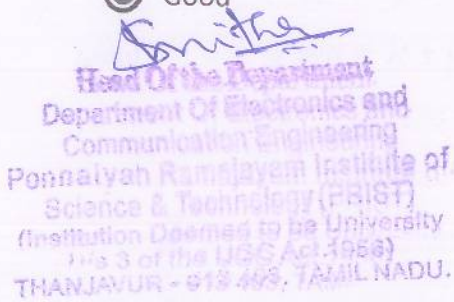 Good
Smitha
Head Of the Department
Department Of Electronics and
Communication Engineering
Ponnaiyah Ramajayam Institute of
Science & Technology (PRIST)
(Institution Deemed to be University
U/s 3 of the UGC Act 1956)
THANJAVUR - 613 403, TAMIL NADU.